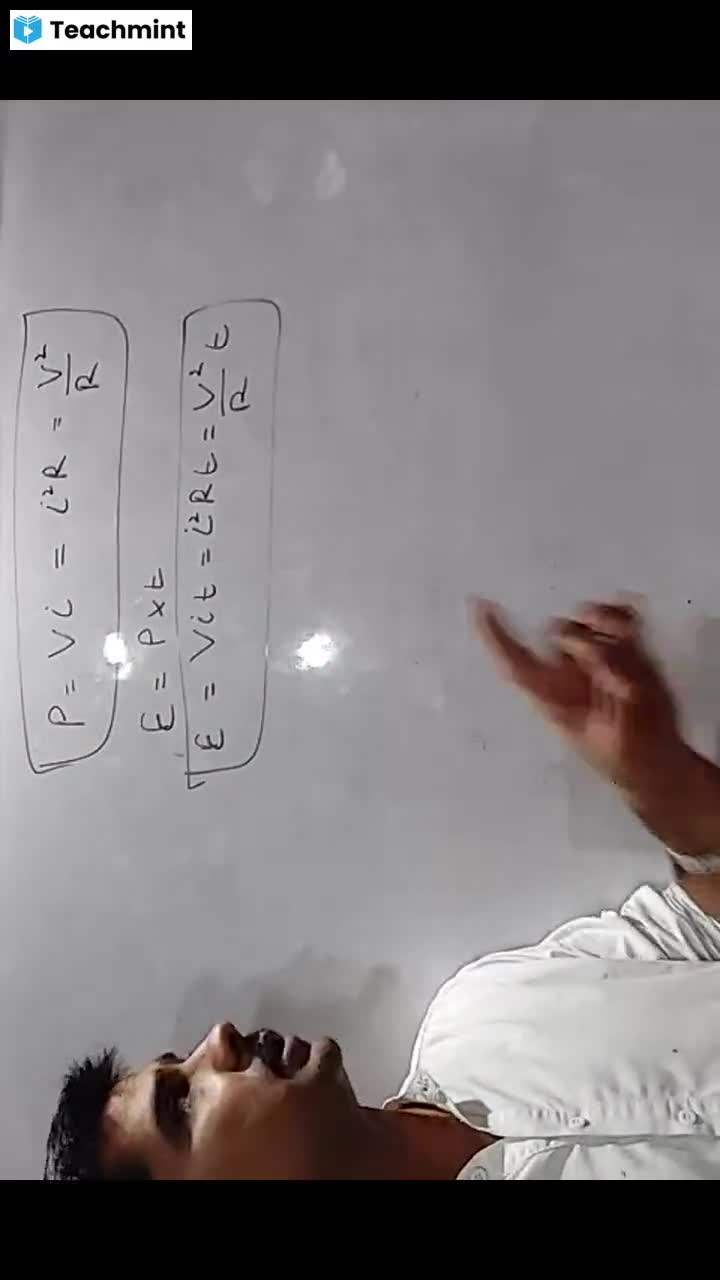 Teachmint
P = Vi = i²R = V²/R
E = P x t
E = Vit = i²Rt = V²/R t